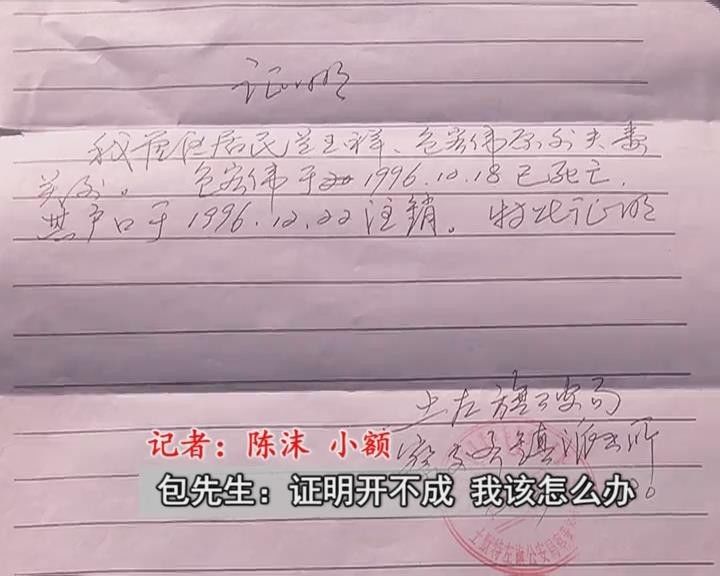 证明
我管住居民兰玉祥、包宏伟原系夫妻
关系。 包宏伟于1996.12.18已死亡,
其户口于1996.12.22注销。特此证明
土左旗公安局
察素齐镇派出所
记者：陈沫 小额
包先生：证明开不成 我该怎么办
土默特左旗公安局察素